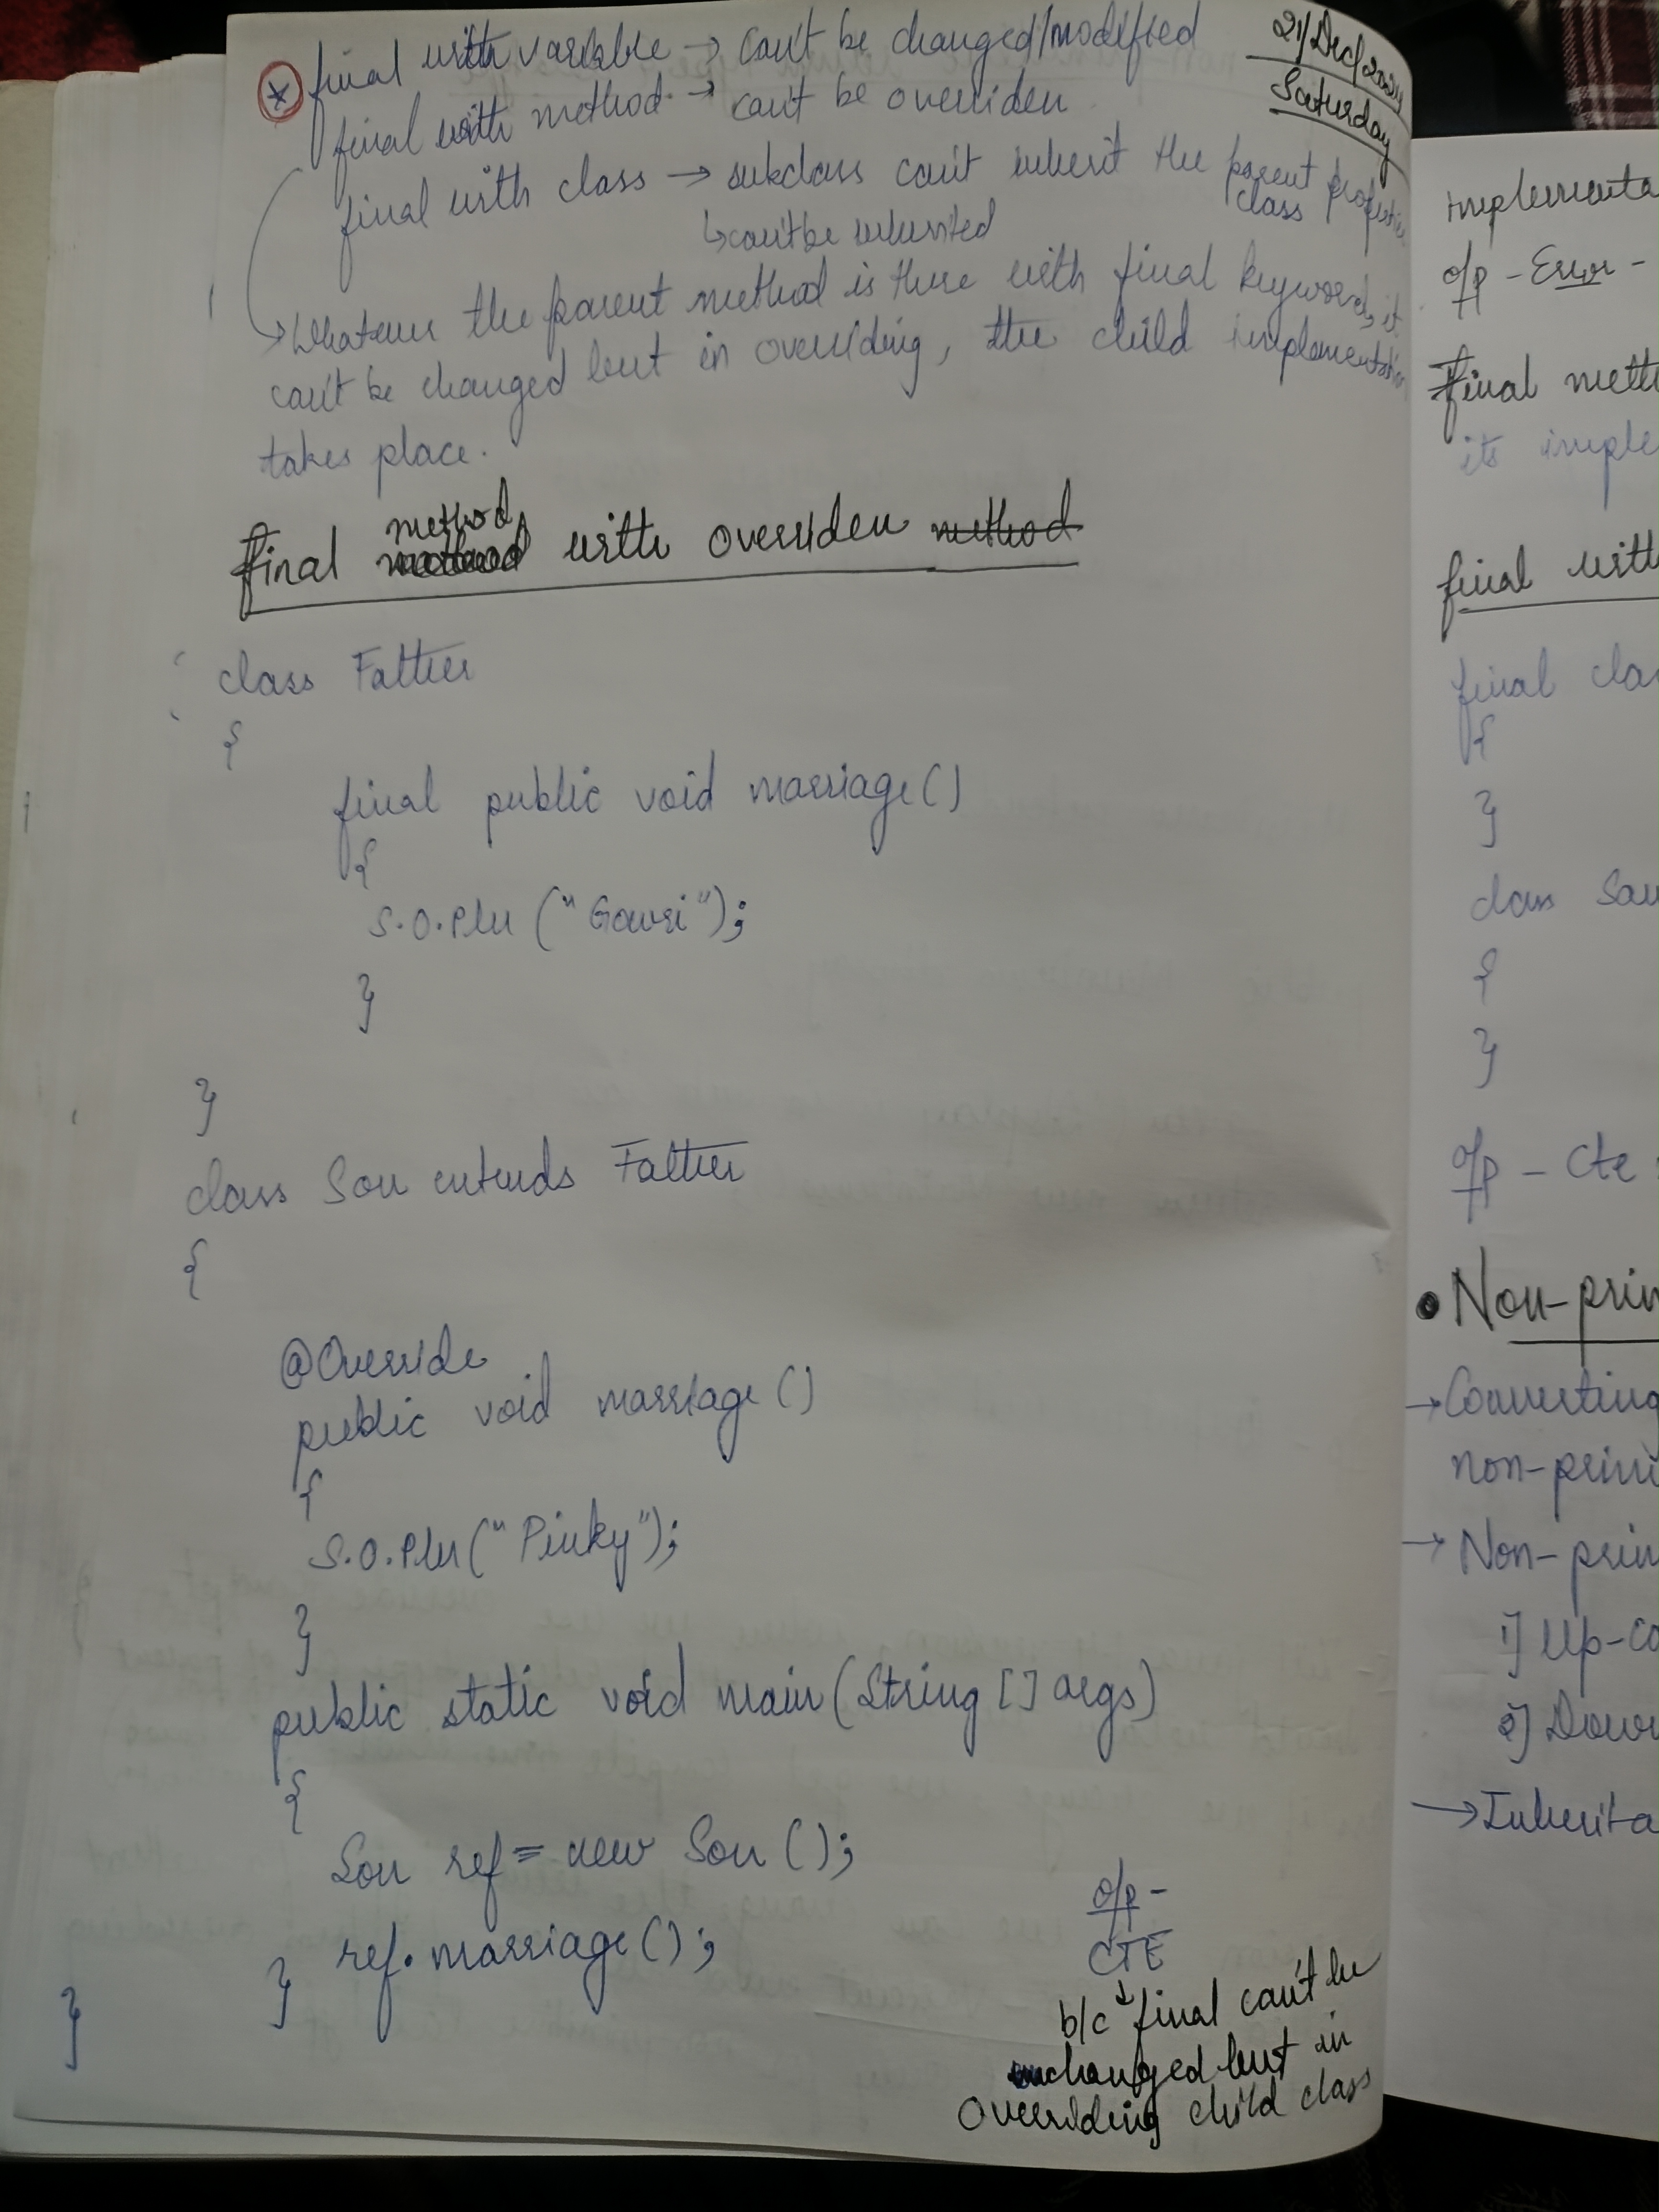 21/Dec/2024
Saturday
* final with variable → can't be changed/modified
final with method → can't be overriden
final with class → subclass can't inherit the parent class properties
↳ can't be inherited
→ Whatever the parent method is there with final keyword, it
can't be changed but in overriding, the child implementation
takes place.
final method with overriden method
class Father
{
final public void marriage()
{
S.O.Pln ("Gowri");
}
}
class Son extends Father
{
@Override
public void marriage()
{
S.O.Pln("Pinky");
}
public static void main(String [] args)
{
Son ref = new Son();
ref.marriage();
}
}
o/p -
CTE
↓
b/c final can't be
changed but in
Overriding child class
implementa
o/p - Error -
final meth
its imple
final with
final clas
{
}
class Son
{
}
o/p - Cte
• Non-prim
→ Converting
non-primi
→ Non-prim
1] Up-ca
2] Down
→ Inherita